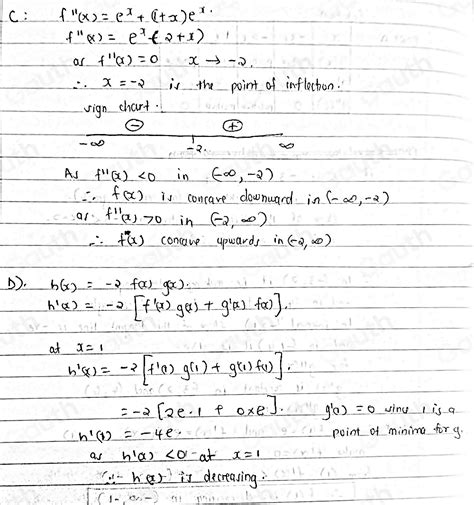 C: f"(x) = e^x + (1+x)e^x.
f"(x) = e^x(2+x)
as f"(x) = 0 x → -2.
∴ x = -2 is the point of inflection.
sign chart.
⊖ ⊕
-∞ -2. ∞
As f"(x) < 0 in (-∞, -2)
∴ f(x) is concave downward in (-∞, -2)
as f"(x) > 0 in (-2, ∞)
∴ f(x) concave upwards in (-2, ∞)
D). h(x) = -2 f(x) g(x).
h'(x) = -2 [f'(x) g(x) + g'(x) f(x)].
at x = 1
h'(x) = -2 [f'(1) g(1) + g'(1) f(1)].
= -2 [2e·1 + 0×e]. g'(1) = 0 since 1 is a
h'(1) = -4e. point of minima for g.
as h'(x) < 0 at x = 1
∴ h(x) is decreasing.